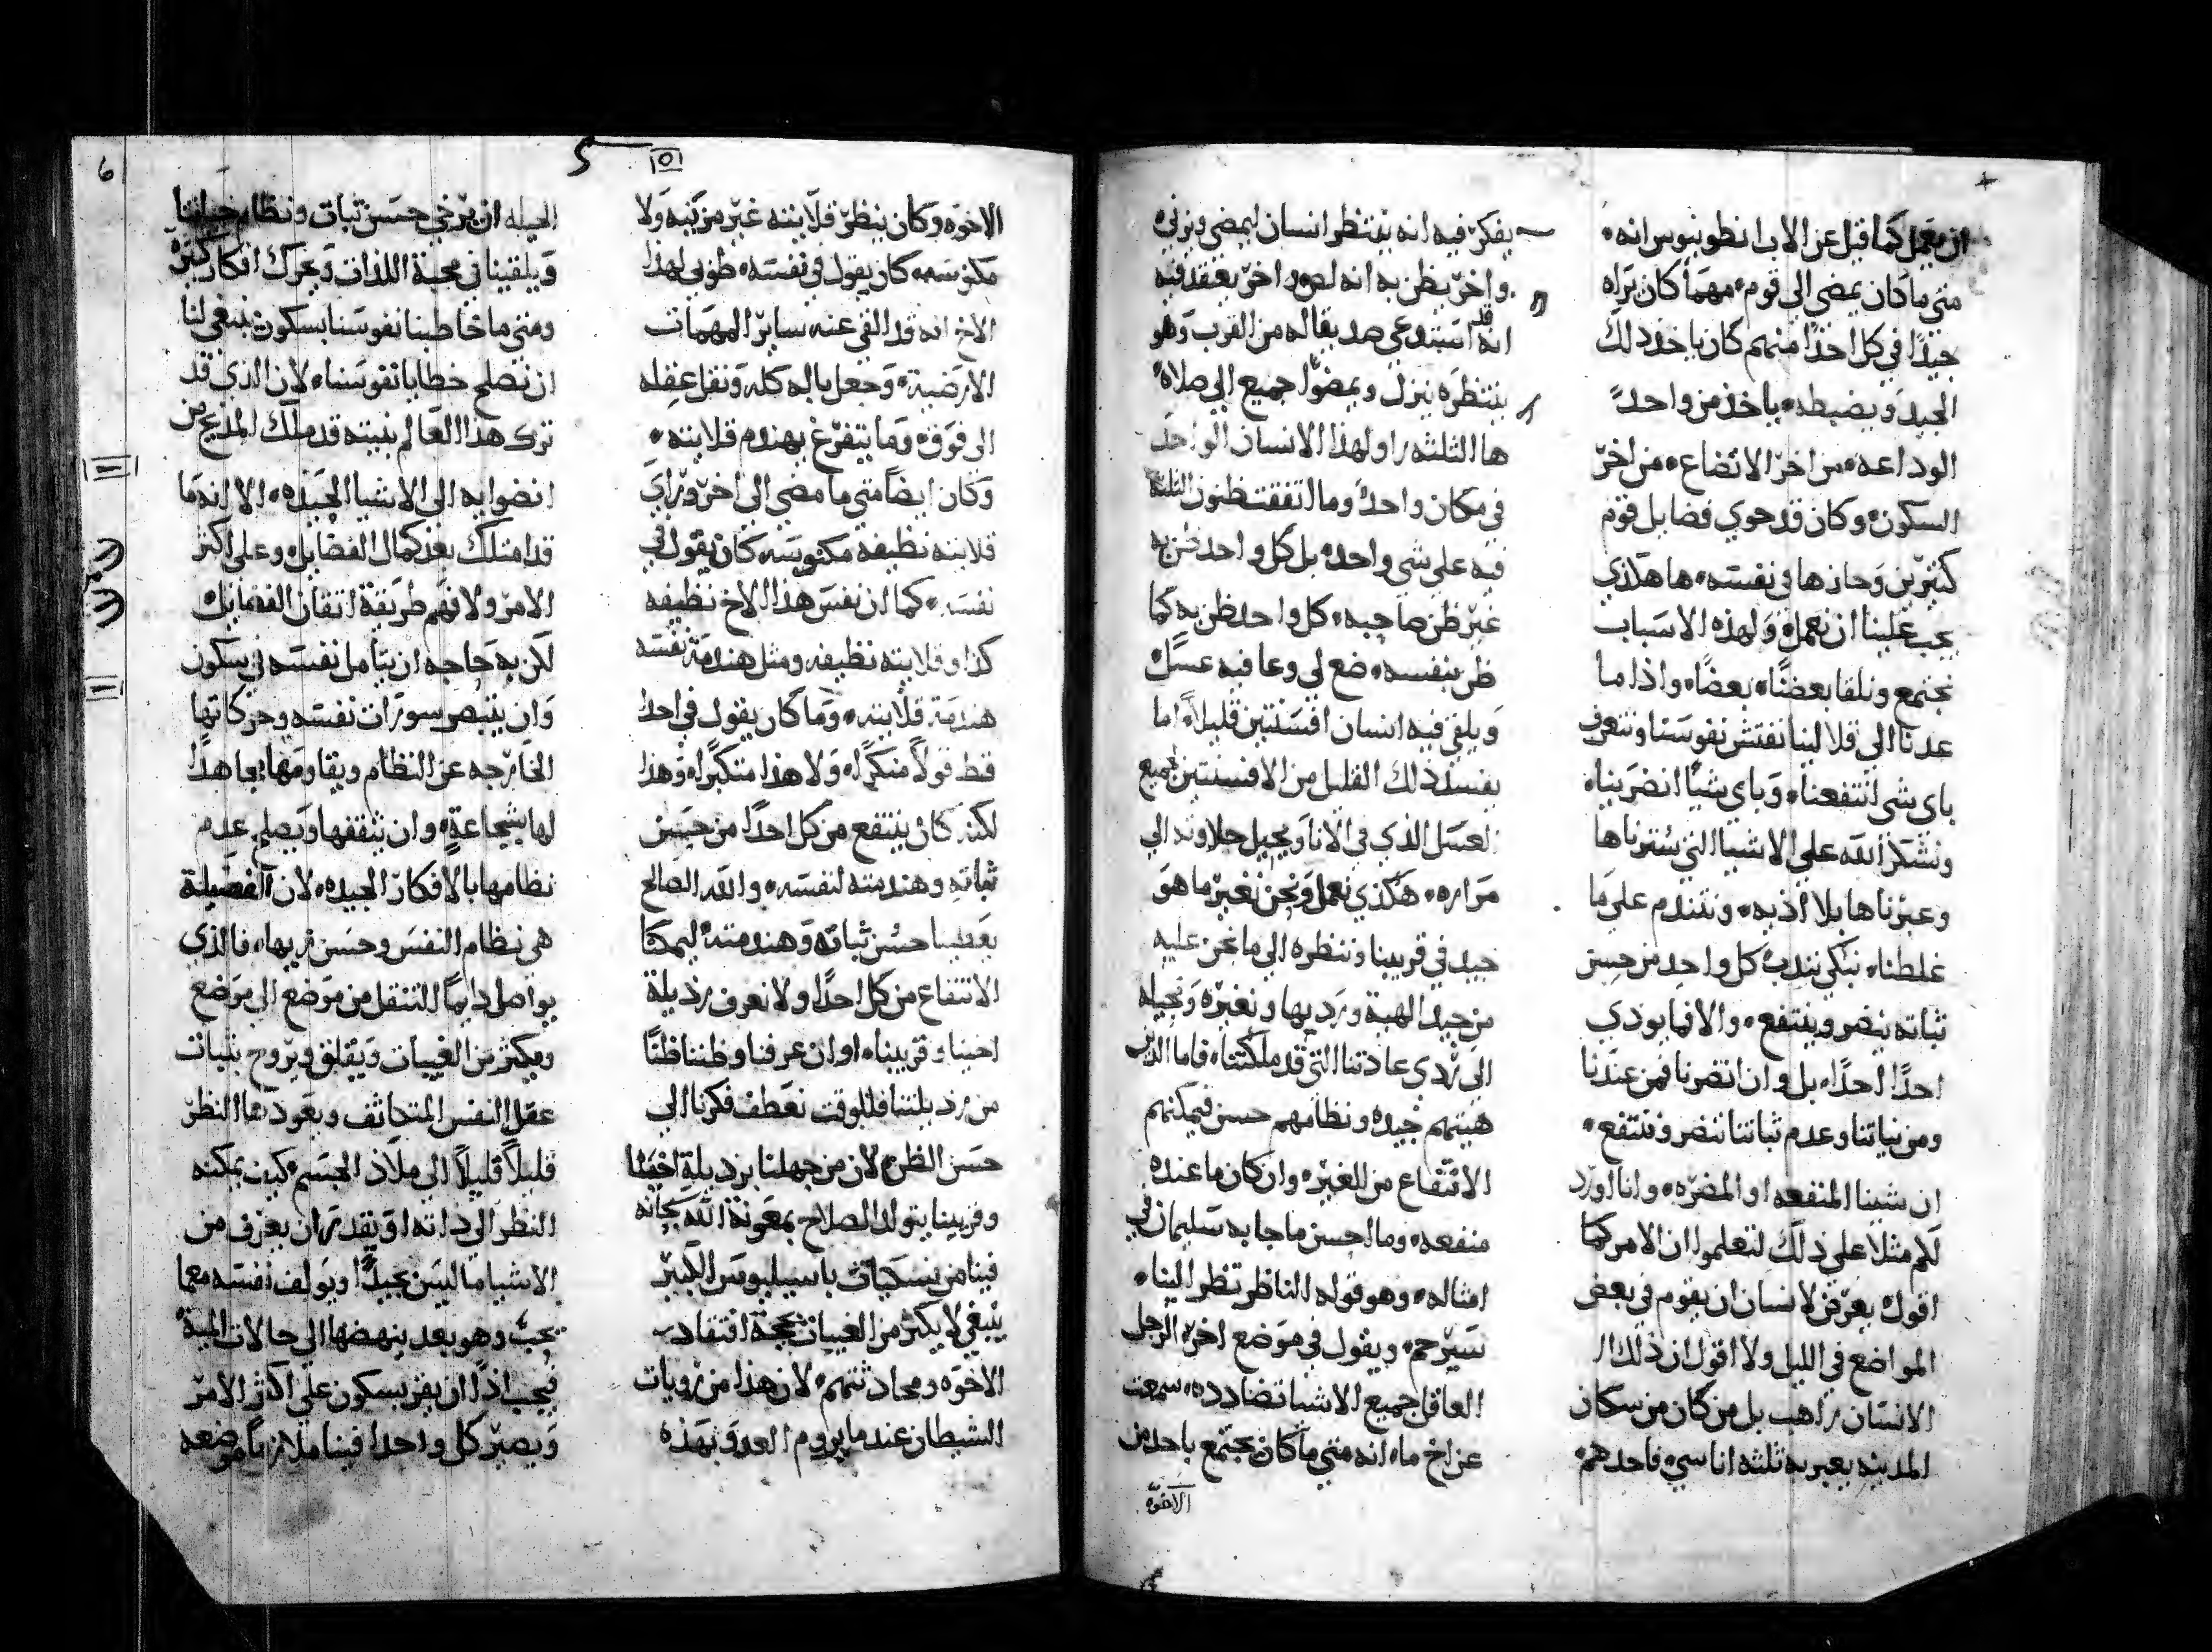 ان يعمل كما قيل عن الاب انطونيوس انه
متى ما كان يمضي الى قوم مهما كان يراه
جيدًا في كل احدًا منهم كان ياخذ ذلك
الجيد ويضبطه ياخذ من واحد
الوداعه من اخر الاتضاع من اخر
السكون وكان قد حوي فضايل قوم
كثيرين وحازها في نفسه ها هكذي
يجب علينا ان نعمله ولهذه الاسباب
نجتمع ونلقا بعضنا بعضًا واذا ما
عدنا الى قلالينا نفتش نفوسنا ونتعرف
باي شي انتفعنا وباي شيًا انضربنا
ونشكر الله على الاشيا التي سترناها
وعبرناها بلا اذيه ونتندم على ما
غلطنا نبكي نندب كل واحد من حسن
ثباته ينضر وينتفع والا فما يوذي
احدًا احدًا بل وان انضرنا فمن عندنا
ومن نياتنا وعدم ثباتنا ننضر وننتفع
ان شينا المنفعه او المضره وانا اورد
لكم مثلا على ذلك لتعلموا ان الامر كما
اقول يعرض لانسان ان يقوم في بعض
المواضع في الليل ولا اقول ان ذلك ال
الانسان راهب بل من كان من سكان
المدينه يعبر به ثلثه اناسي فاحدهم
يفكر فيه انه ينتظر انسان ليمضي ويزني
واخر يظن به انه لص واخر يعتقد فيه
انه قد استدعي صديقا له من القرب وهو
ينتظره ينزل ويمضوا جميع الى صلاه
ها الثلثه راو لهذا الانسان الواحد
في مكان واحد وما اتفقت ظنون الثلثه
فيه على شي واحد بل كل واحد ظن به
غير ظن صاحبه كل واحد ظن به كما
ظن بنفسه ضع لي وعا فيه عسل
ويلقي فيه انسان افسنتين قليلاً اما
يفسد ذلك القليل من الافسنتين جميع
العسل الذي في الانا ويحيل حلاوته الى
مراره هكذي نعمل ونحن نغير ما هو
جيد في قريبنا وننظره الى ما نحن عليه
من جيد الهية ورديها ونغيره ونحيله
الى ردي عادتنا التي قد ملكتنا فاما الذين
هيتهم جيده ونظامهم حسن فيمكنهم
الانتفاع من الغير وان كان ما عنده
منفعه وما احسن ما جا به سليمان في
امثاله وهو قوله الناظر تظر الينا
سيرحم ويقول في موضع اخر الرجل
العاقل جميع الاشيا تضادده سمعت
عن اخ ما انه متى ما كان يجتمع باحد من
الاخوه
الاخوه وكان ينظر قلايته غير مرتبه ولا
مكنوسه كان يقول في نفسه طوبى لهذا
الاخ انه قد القى عنه ساير المهمات
الارضية وجعل باله كله ونقل عقله
الى فوق وما يتفرغ يهندم قلايته
وكان ايضًا متى ما مضى الى اخر وراي
قلايته نظيفه مكنوسه كان يقول في
نفسه كما ان نفس هذا الاخ نظيفه
كذا وقلايته نظيفه ومثل هندمة نفسه
هندمة قلايته وما كان يقول في احد
قط قولاً منكرًا ولا هذا متكبرًا وهذا
لكنه كان ينتفع من كل احدًا من حسن
ثباته وهندمته لنفسه والله الصالح
يعطينا حسن ثباته وهندمته ليمكنا
الانتفاع من كل احدًا ولا نعرف رذيلة
اخينا وقريبنا او ان عرفنا وظننا ظنًا
من رذيلتنا فللوقت نعطف فكرنا الى
حسن الظن لان من جهلنا برذيلة اخينا
وقريبنا يتولد الصلاح بمعونة الله سبحانه
فينا من نسكيات باسيليوس الكبير
ينبغي لا يكثر من الغيبات بحجة افتقاد
الاخوه ومحادثتهم لان هذا من رويات
الشيطان عندما يروم العدو بهذه
الحيله ان يرخي حسن ثبات ونظام حياتنا
ويلقينا في محبة اللذات وتحرك افكار كثيرة
ومتى ما خاطبنا نفوسنا بسكون ينبغي لنا
ان نصلح خطايا نفوسنا لان الذي قد
ترك هذا العالم بنيته قد ملك المديح من
انضوايه الى الاشيا الجيده الا انه ما
قد امتلك بعد كمال الفضايل وعلى اكثر
الامر ولا فهم طريقة اتقان الفضايل
لكن به حاجه ان يتامل نفسه في سكون
وان يتبصر سورات نفسه وحركاتها
الخارجه عن النظام ويقاومها مجاهدًا
لها بشجاعةٍ وان يثقفها ويصلح عدم
نظامها بالافكار الجيده لان الفضيلة
هي نظام النفس وحسن زيها فالذي
يواصل دايمًا التنقل من موضع الى موضع
ويكثر من الغيبات ويقلق ويروح بثبات
عقل النفس المتحاثف ويعود هذا النظر
قليلاً قليلاً الى ملاذ الجسم كيف يمكنه
النظر الى ذاته او يقدر ان يعرف من
الاشيا ما ليس بجيدًا ويولف نفسه معما
يجب وهو بعد ينهضها الى حالات الميه
فيجب اذًا ان يقر بسكون على اكثر الامر
ويصير كل واحدا فينا ملازمًا موضعه